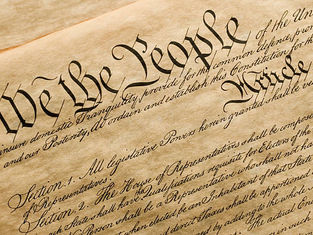 We the People of the Un
insure domestic Tranquility, provide for the common defence, prom
and our Posterity, do ordain and establish this Constitution for th
Article
Section. 1. All legislative Powers herein granted shall be ves
of Representatives.
Section. 2. The House of Representatives shall be compose
State shall have Qualifications requisite for Electors of the
No Person shall be a Representative who shall not hav
when elected, be an Inhabitant of that State
direct Taxes shall be apportioned
by adding to the whole
The actual Enu